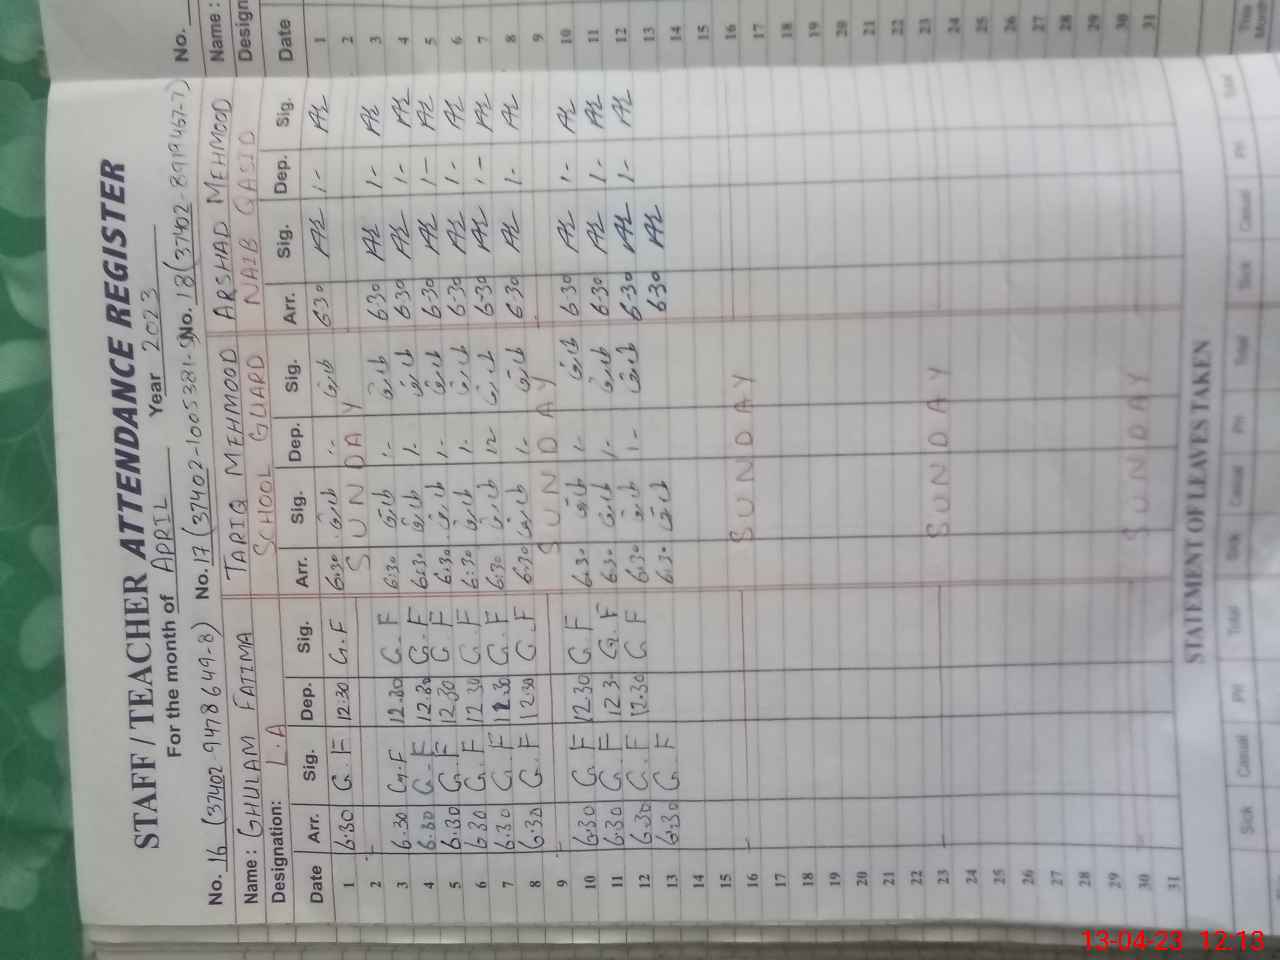 STAFF / TEACHER ATTENDANCE REGISTER
For the month of APRIL Year 2023
No. 16 (37402-9478649-8) No. 17 (37402-1005381-5) No. 18 (37402-8919467-7) No.
Name : GHULAM FATIMA TARIQ MEHMOOD ARSHAD MEHMOOD Name :
Designation: L.A SCHOOL GUARD NAIB QASID Design
Date Arr. Sig. Dep. Sig. Arr. Sig. Dep. Sig. Arr. Sig. Dep. Sig. Date
1 6.30 G.F 12:30 G.F 6:30 1- 630 1- 1
2 SUNDAY 2
3 6.30 G.F 12.30 G.F 6:30 1- 630 1- 3
4 6.30 G.F 12.30 G.F 6:30 1- 6.30 1- 4
5 6.30 G.F 12.30 G.F 6:30 1- 6.30 1- 5
6 6.30 G.F 12.30 G.F 6:30 1- 6.30 1- 6
7 6.30 G.F 12.30 G.F 6:30 12- 6.30 1- 7
8 6.30 G.F 12.30 G.F 6:30 1- 6.30 1- 8
9 SUNDAY 9
10 6.30 G.F 12.30 G.F 6.30 1- 6.30 1- 10
11 6.30 G.F 12.3- G.F 6.30 1- 6.30 1- 11
12 6.30 G.F 12.30 G.F 6.30 1- 6.30 1- 12
13 6.30 G.F 6.30 630 13
14 14
15 15
16 SUNDAY 16
17 17
18 18
19 19
20 20
21 21
22 22
23 SUNDAY 23
24 24
25 25
26 26
27 27
28 28
29 29
30 SUNDAY 30
31 31
STATEMENT OF LEAVES TAKEN
Sick Casual PH Total Sick Casual PH Total Sick Casual PH Total
13-04-23 12:13